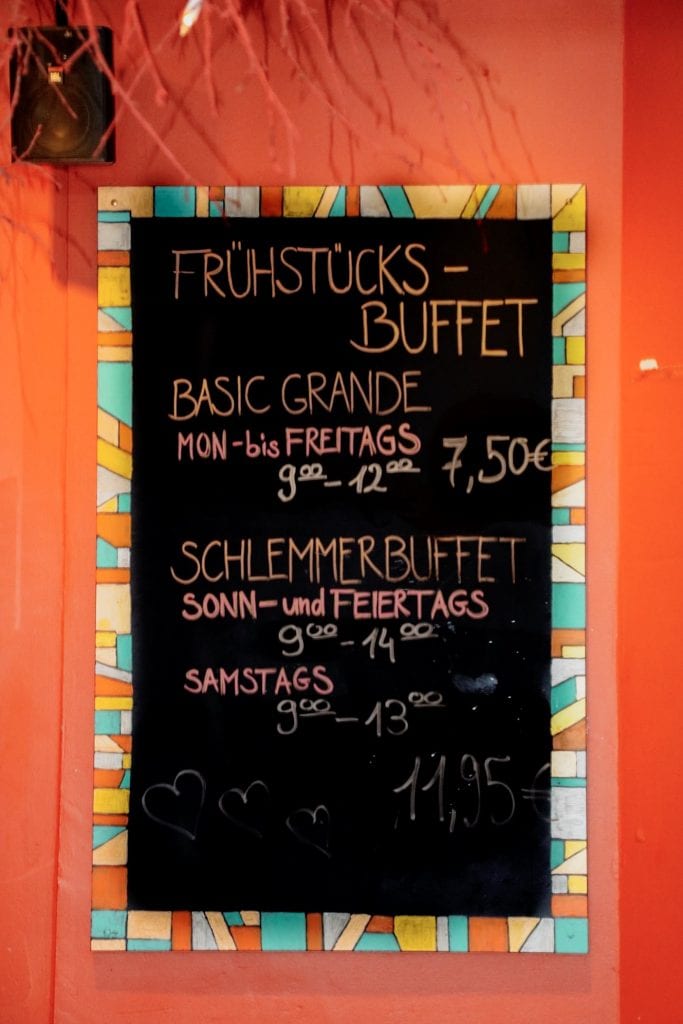 FRÜHSTÜCKS-
BUFFET
BASIC GRANDE
MON-bis FREITAGS
9⁰⁰-12⁰⁰ 7,50€
SCHLEMMERBUFFET
SONN-und FEIERTAGS
9⁰⁰-14⁰⁰
SAMSTAGS
9⁰⁰-13⁰⁰
11,95€